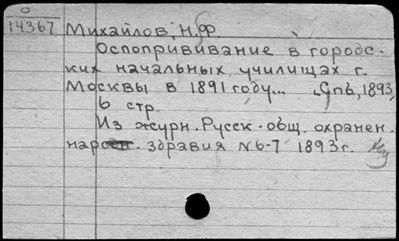 0
14367 Михайлов, Н.Ф
Оспопрививание в городс-
ких начальных училищах г.
Москвы в 1891 году... Спб, 1893,
6 стр.
Из журн. Русск. общ. охранен.
нар. здравия N 6-7 1893 г.